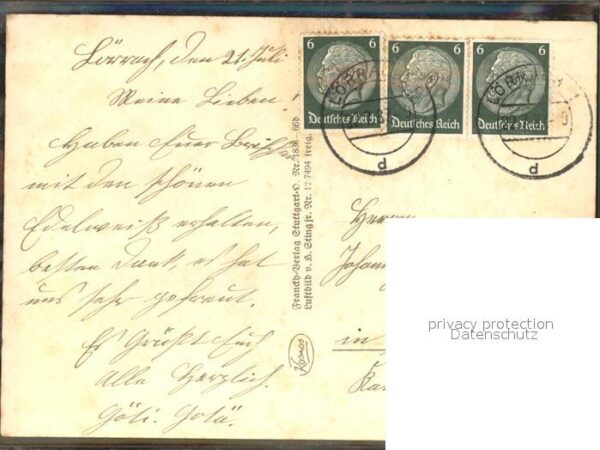 Lörrach, den 21. Juli
Meine Lieben!
Haben Euer
mit den schönen
Edelweiß erhalten,
besten Dank, es hat
uns sehr gefreut.
Es Grüßt Euch
Alle Herzlich.
6
Deutsches Reich
6
Deutsches Reich
6
Deutsches Reich
LÖRRACH
d
LÖRRACH 1
d
Franckh-Verlag Stuttgart-O. Nr. 1838—66d
Luftbild v. H. Sting jr. Nr. 12 7494 freig.
Kosmos
Herrn
Johan
in
Ka
privacy protection
Datenschutz